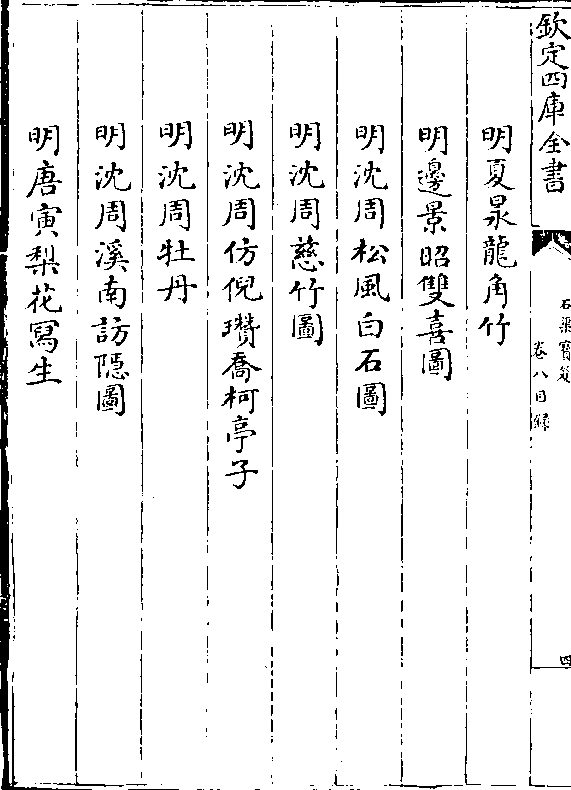 欽定四庫全書
石渠寶笈
卷八目録
四
明夏㫤龍角竹
明邊景昭雙喜圖
明沈周松風白石圖
明沈周慈竹圖
明沈周仿倪瓚喬柯亭子
明沈周牡丹
明沈周溪南訪隱圖
明唐寅梨花寫生